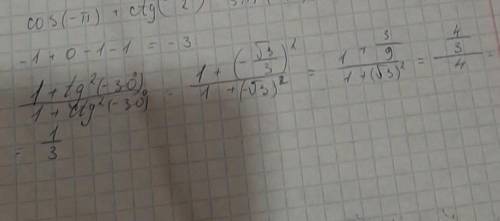 cos(-π) + ctg(
-1 + 0 - 1 - 1 = -3
(1 + tg²(-30°))/(1 + ctg²(-30°)) = (1 + (-√3/3)²)/(1 + (-√3)²) = (1 + 3/9)/(1 + (√3)²) = (4/3)/4 =
= 1/3